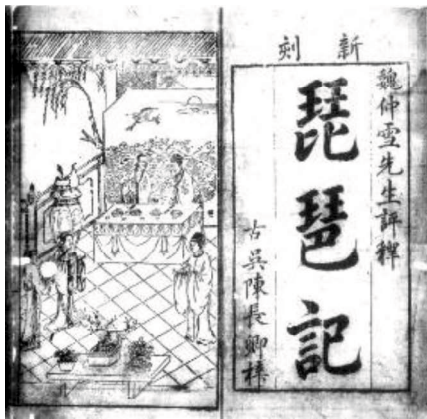 新刻
魏仲雪先生評釋
琵琶記
古吳陳長卿梓